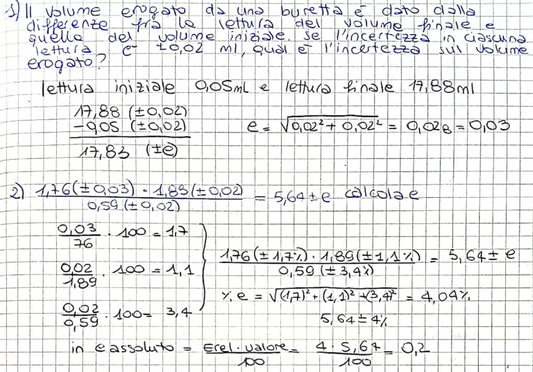 1) Il volume erogato da una buretta è dato dalla
differenze fra la lettura del volume finale e
quella del volume iniziale. Se l'incertezza in ciascuna
lettura è ±0,02 ml, qual è l'incertezza sul volume
erogato?
lettura iniziale 0,05ml e lettura finale 17,88ml
17,88 (±0,02)
-0,05 (±0,02)
17,83 (±e)
e = √0,02² + 0,02² = 0,028 = 0,03
2) 1,76(±0,03) · 1,89(±0,02) / 0,59(±0,02) = 5,64 ± e calcola e
0,03/76 · 100 = 1,7
0,02/1,89 · 100 = 1,1
0,02/0,59 · 100 = 3,4
1,76(±1,7%) · 1,89(±1,1%) / 0,59(±3,4%) = 5,64 ± e
% e = √(1,7)² + (1,1)² + (3,4)² = 4,04%
5,64 ± 4%
in e assoluto = erel · valore / 100 = 4 · 5,64 / 100 = 0,2